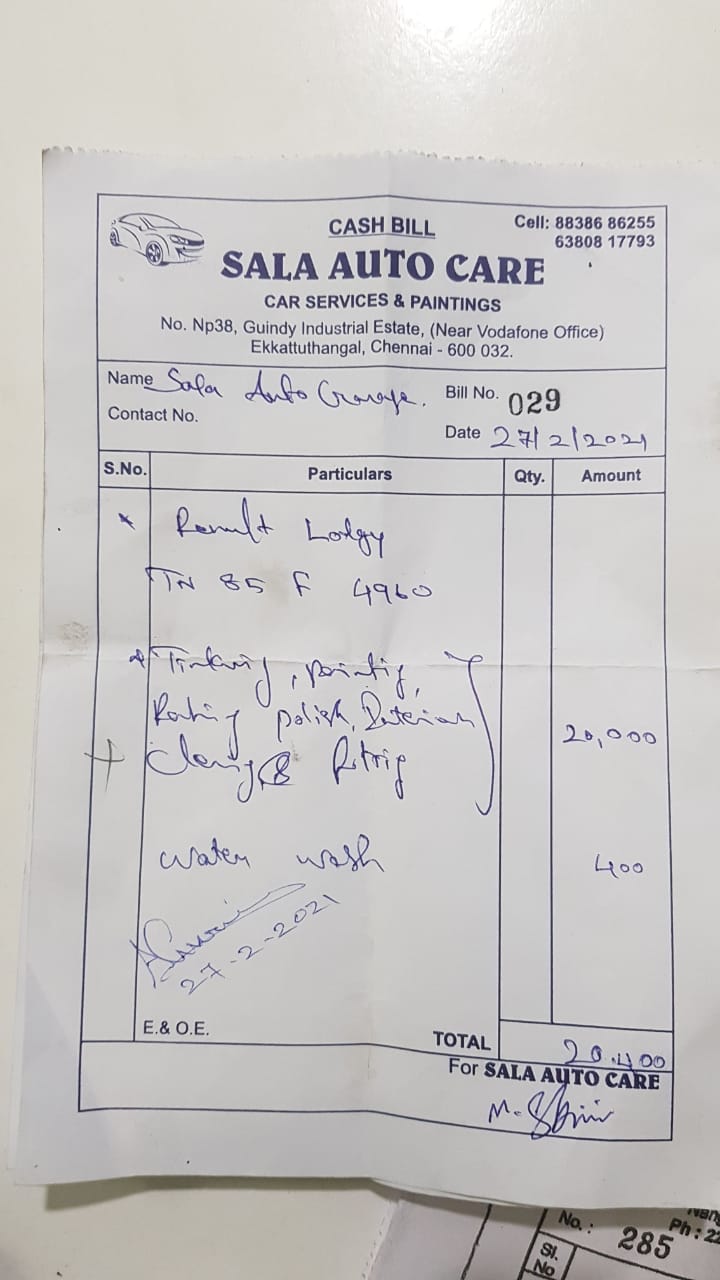 CASH BILL
Cell: 88386 86255
63808 17793
SALA AUTO CARE
CAR SERVICES & PAINTINGS
No. Np38, Guindy Industrial Estate, (Near Vodafone Office)
Ekkattuthangal, Chennai - 600 032.
Name Sala Auto Garage.
Bill No. 029
Contact No.
Date 27/2/2021
S.No. Particulars Qty. Amount
Renult Lodgy
TN 85 F 4960
Tinkering, painting,
Rubbing polish, Interior
20,000
& 
water wash 400
27-2-2021
E.& O.E.
TOTAL 20,400
For SALA AUTO CARE
No.: 285
Ph: 22
Sl.
No